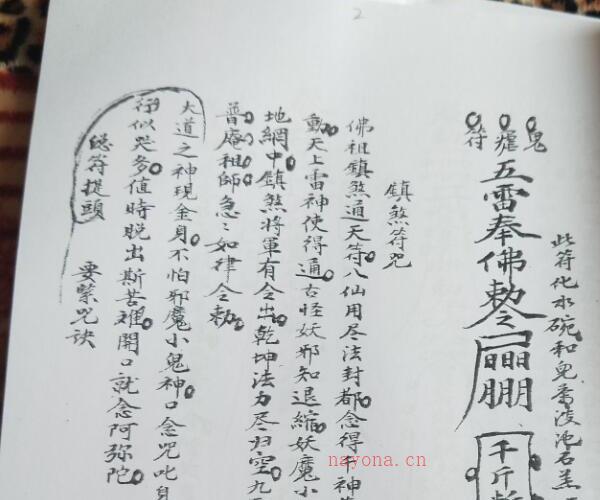 2
此符化水碗和兒茶
鬼瘧符
五雷奉佛勅令
千斤
鎮煞符咒
佛祖鎮煞通天符八仙用尽法封都念得千神
動天上雷神使得通古怪妖邪知退縮妖魔小
地網中鎮煞將軍有令出乾坤法力尽归空九
普庵祖師急〻如律令勅
大道之神現金身不怕邪魔小鬼神口念咒叱身
行似咒务值時脱出斯苦難開口就念阿弥陀
總符提頭 要緊咒訣
nayona.cn